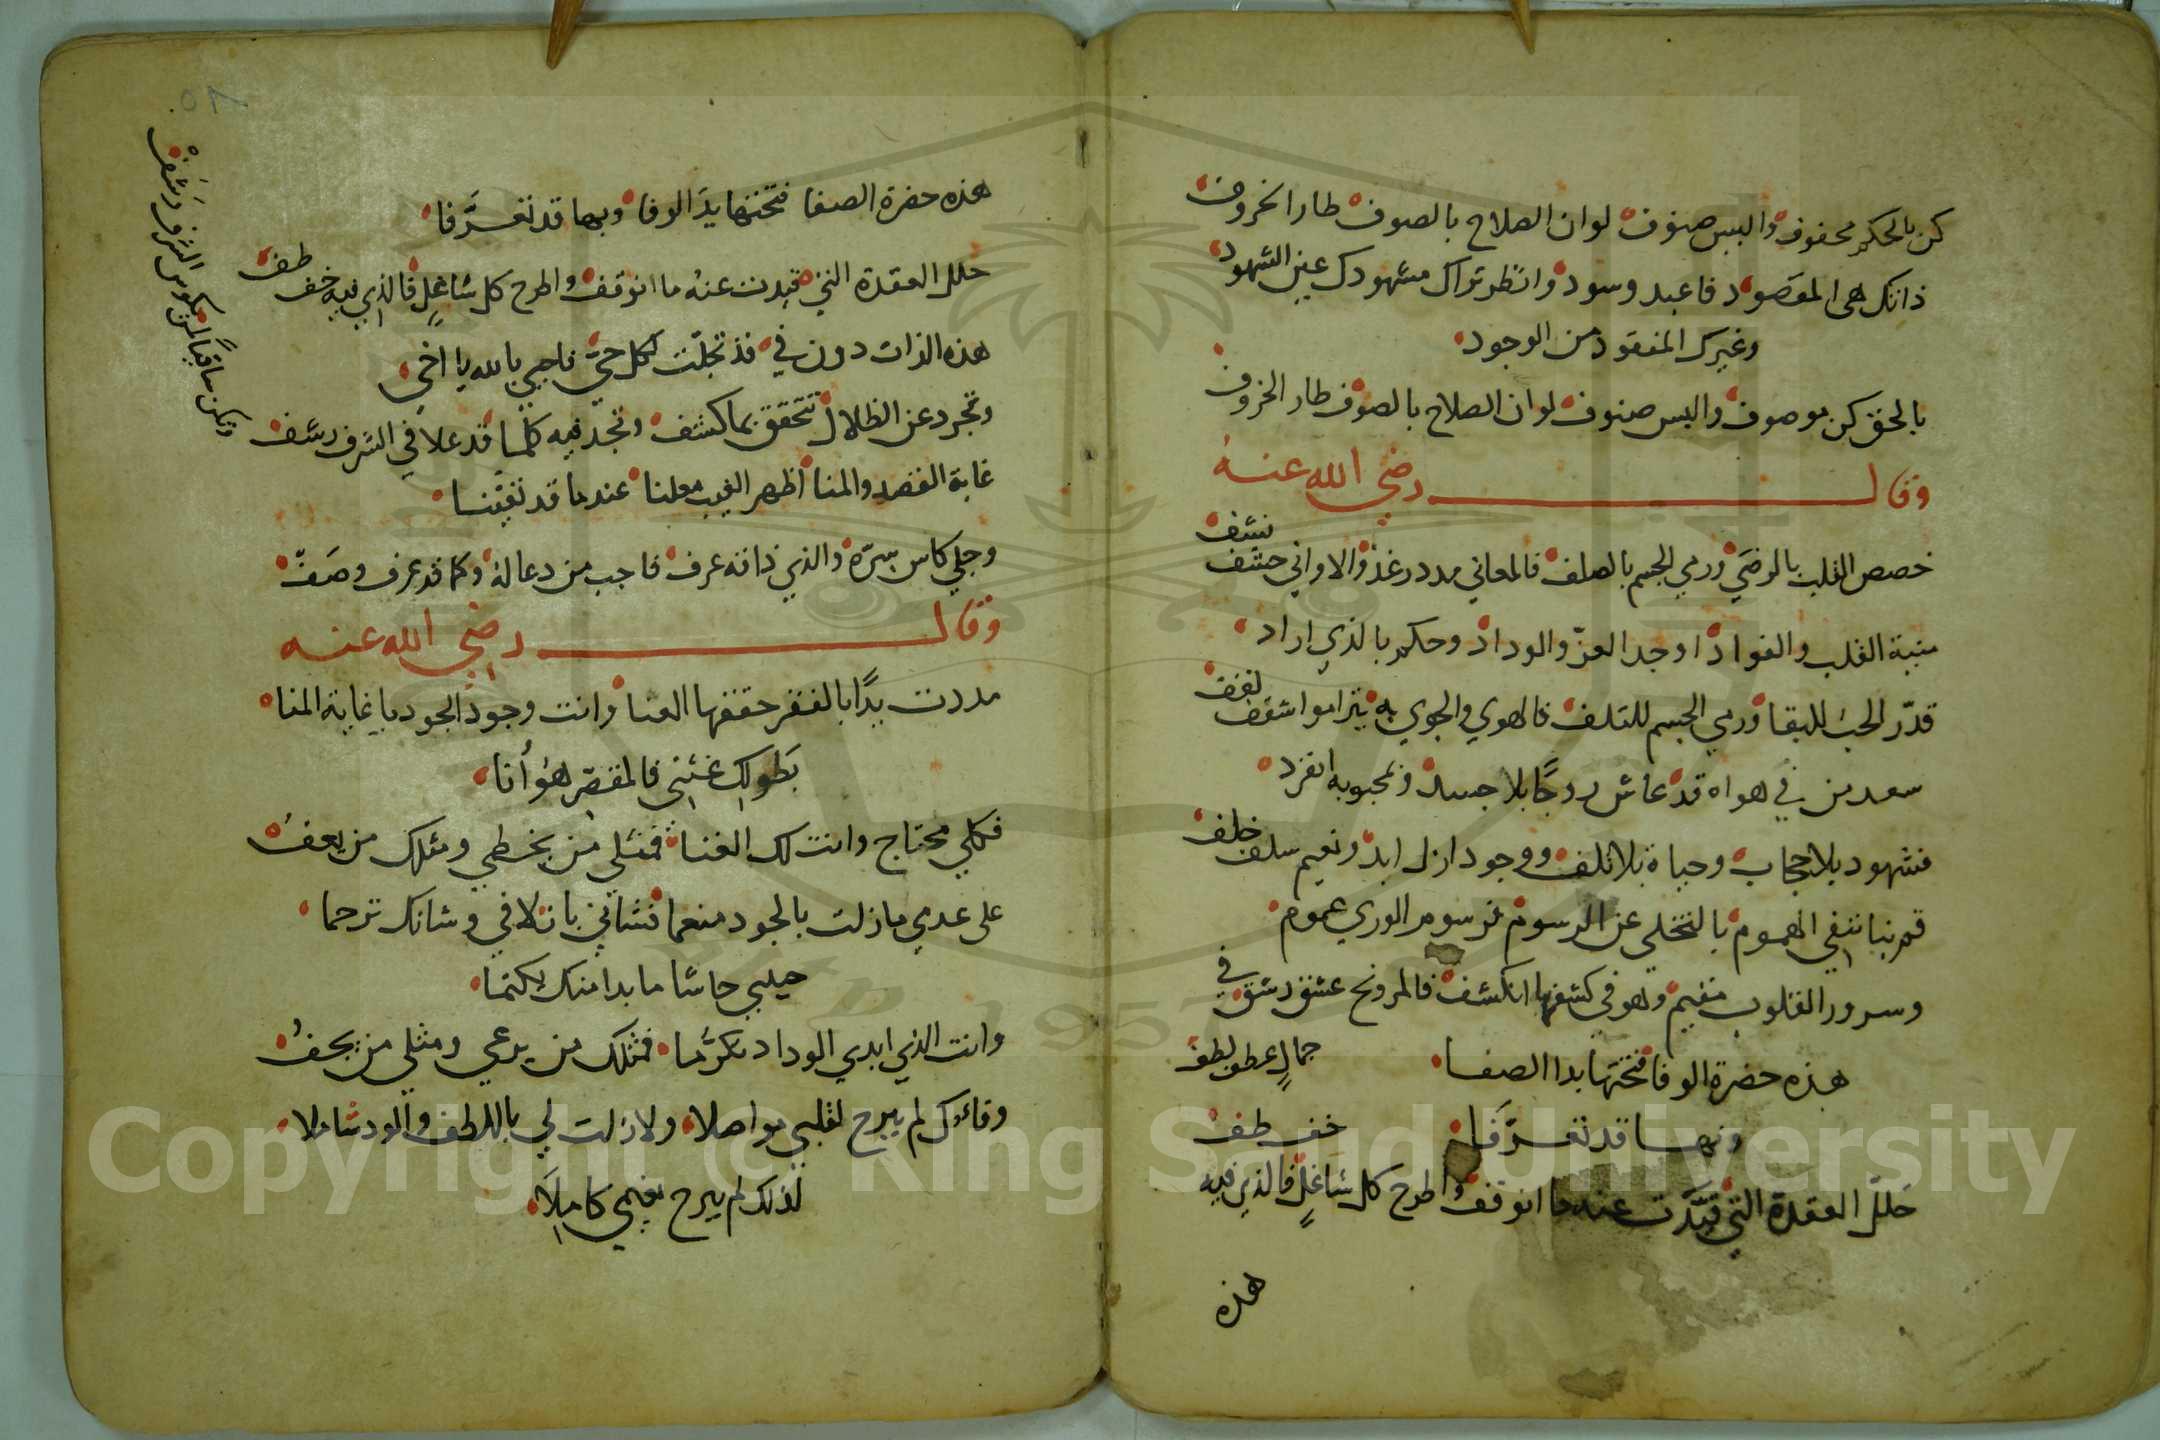 كن بالحكم محفوف والبس صنوف لوان الصلاح بالصوف طار الخروف
ذاتك هي المقصود فاعبد وسود وانظر تراك مشهودك عين الشهود
وغيرك المفقود من الوجود
بالحق كن موصوف والبس صنوف لوان الصلاح بالصوف طار الخروف
وقال رضي الله عنه
خصص القلب بالوضي ورمي الجسم بالصلف فالمعاني مدد رغذ والاواني حشف نشف
منية القلب والفواد اوجد العز والوداد وحكم بالذي اراد
قدّر الحب للبقا ورمي الجسم للتلف فالهوي والجوي به يتراموا شغف لفف
سعد من في هواه قد عاش روحًا بلا جسد وبمحبوبه انفرد
فشهود بلا حجاب وحياة بلا تلف ووجود ازل ابد ونعيم سلف خلف
قم بنا ننفي الهموم بالتخلي عن الرسوم فرسوم الوري عموم
وسرور القلوب مقيم وهو في كشفها انكشف فالمرونح عشق رشق في
جمالٍ عطف لطف
هذه حضرة الوفا فتحتها بدا الصفا
وبها قد تعرّفَا
خف طف
حَللَ العقدة التي قيَّدَت عندما انوقف واطرح كل شاغلٍ فالذي فيه
هذه
٥٨
هذه حضرة الصفا فتحتها يدَ الوفا وبها قد تعرَّفا
حلل العقدة التي قيدت عنه ما انوقف واطرح كل شاغلٍ فالذي فيه خف طف
هذه الذات دون في قد تجلّت لكل حيّ ناجي بالله يا اخي
وتجرد عن الظلال تتحقق بما كشف وتجد فيه كلما قد علا في الشرف رشف
غاية القصد والمنا اظهر الغيب معلنا عندما قد تعيّنا
وجلي كاس سرّه والذي ذاقه عرف فاجب من دعا له وكما قد عرف وصَفْ
وتكن ساقيًا لمن بكوس الشرف رَشَفْ
وقال رضي الله عنه
مددت يدًا بالفقر حققها العنا وانت وجود الجود يا غاية المنا
بَطولك غثني فالمقصّر هوُ أنا
فكلي محتاج وانت لك الغنا فمثلي من يخطي ومثلك من يعفُ
على عدمي ما زلت بالجود منعما فشاني يا تلافي وشانك ترحما
حبيبي حاشا ما بدا منك يكتما
وانت الذي ابدي الوداد تكرّما فمثلك من يرعي ومثلي من يجفُ
وفاءُك لم يبرح لقلبي مواصلا ولا زلت لي باللطف والود شاملا
لذلك لم يبرح نعيمي كاملاَ